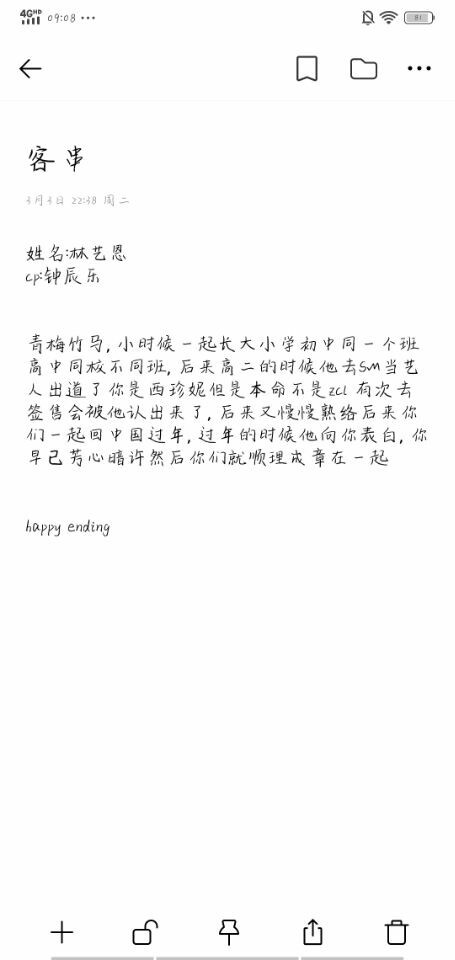 4G HD 09:08 ••• 81
客串
3月3日 22:38 周二
姓名:林艺恩
cp:钟辰乐
青梅竹马,小时候一起长大小学初中同一个班
高中同校不同班,后来高二的时候他去SM当艺
人出道了你是西珍妮但是本命不是zcl有次去
签售会被他认出来了,后来又慢慢熟络后来你
们一起回中国过年,过年的时候他向你表白,你
早已芳心暗许然后你们就顺理成章在一起
happy ending